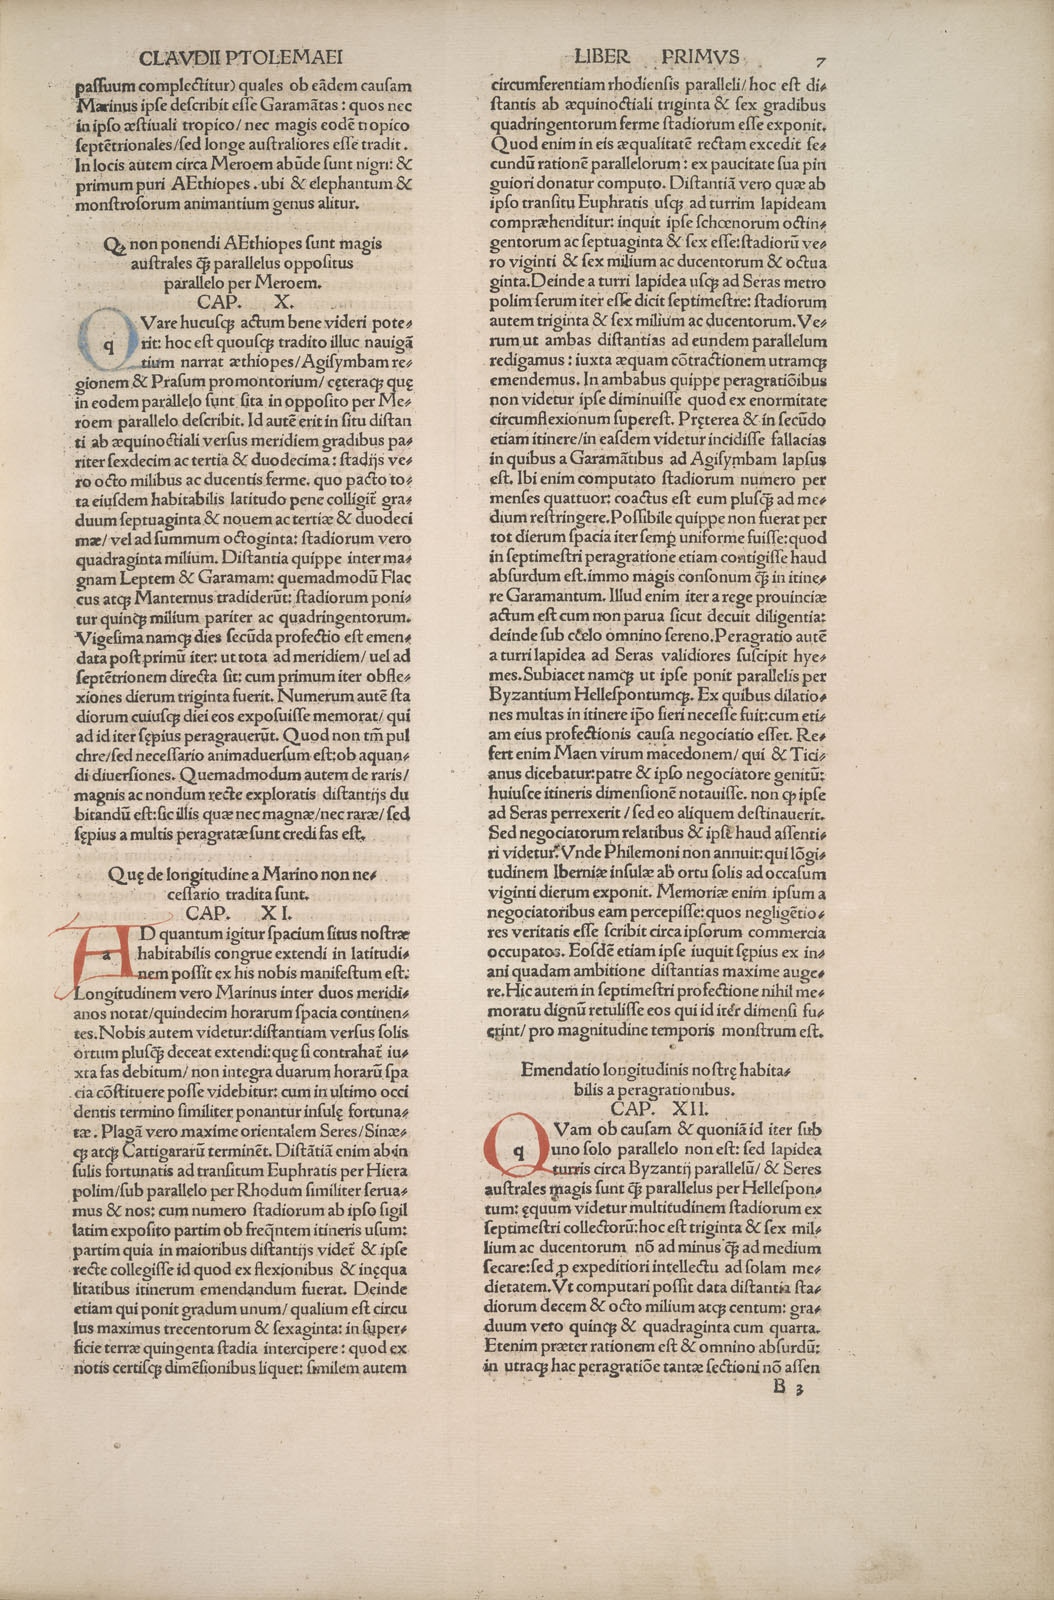 CLAVDII PTOLEMAEI
passuum complectitur) quales ob eãdem causam
Marinus ipse describit esse Garamãtas: quos nec
in ipso æstiuali tropico/ nec magis eodẽ tropico
septẽtrionales/sed longe australiores esse tradit.
In locis autem circa Meroem abũde sunt nigri: &
primum puri AEthiopes. ubi & elephantum &
monstrosorum animantium genus alitur.
Qꝫ non ponendi AEthiopes sunt magis
australes q̃ꝫ parallelus oppositus
parallelo per Meroem.
CAP. X.
q
QVare hucusqꝫ actum bene videri pote⸗
rit: hoc est quousqꝫ tradito illuc nauigã
tium narrat æthiopes/Agisymbam re⸗
gionem & Prasum promontorium/ cęteraqꝫ quę
in eodem parallelo sunt sita in opposito per Me⸗
roem parallelo describit. Id autẽ erit in situ distan
ti ab æquinoctiali versus meridiem gradibus pa⸗
riter sexdecim ac tertia & duodecima: stadijs ve⸗
ro octo milibus ac ducentis ferme. quo pacto to⸗
ta eiusdem habitabilis latitudo pene colligit̃ gra⸗
duum septuaginta & nouem ac tertiæ & duodeci
mæ/ vel ad summum octoginta: stadiorum vero
quadraginta milium. Distantia quippe inter ma⸗
gnam Leptem & Garamam: quemadmodũ Flac
cus atqꝫ Manternus tradiderũt: stadiorum poni⸗
tur quinqꝫ milium pariter ac quadringentorum.
Vigesima namqꝫ dies secũda profectio est emen⸗
data post primũ iter: ut tota ad meridiem/ uel ad
septẽtrionem directa sit: cum primum iter obfle⸗
xiones dierum triginta fuerit. Numerum autẽ sta
diorum cuiusqꝫ diei eos exposuisse memorat/ qui
ad id iter sępius peragrauerũt. Quod non tm̃ pul
chre/sed necessario animaduersum est: ob aquan⸗
di diuersiones. Quemadmodum autem de raris/
magnis ac nondum recte exploratis distantijs du
bitandũ est: sic illis quæ nec magnæ/nec raræ/ sed
sępius a multis peragratæ sunt credi fas est.
Quę de longitudine a Marino non ne⸗
cessario tradita sunt.
CAP. XI.
a
AD quantum igitur spacium situs nostræ
habitabilis congrue extendi in latitudi⸗
nem possit ex his nobis manifestum est.
Longitudinem vero Marinus inter duos meridi⸗
anos notat/quindecim horarum spacia continen⸗
tes. Nobis autem videtur: distantiam versus solis
ortum plusq̃ꝫ deceat extendi: quę si contrahat̃ iu⸗
xta fas debitum/ non integra duarum horarũ spa
cia cõstituere posse videbitur: cum in ultimo occi
dentis termino similiter ponantur insulę fortuna⸗
tæ. Plagã vero maxime orientalem Seres/Sinæ⸗
qꝫ atqꝫ Cattigararũ terminẽt. Distãtiã enim ab in
sulis fortunatis ad transitum Euphratis per Hiera
polim/sub parallelo per Rhodum similiter serua⸗
mus & nos: cum numero stadiorum ab ipso sigil
latim exposito partim ob freq̃ntem itineris usum:
partim quia in maioribus distantijs videt̃ & ipse
recte collegisse id quod ex flexionibus & inęqua
litatibus itinerum emendandum fuerat. Deinde
etiam qui ponit gradum unum/ qualium est circu
lus maximus trecentorum & sexaginta: in super⸗
ficie terræ quingenta stadia intercipere: quod ex
notis certisqꝫ dimẽsionibus liquet: similem autem
LIBER PRIMVS 7
circumferentiam rhodiensis paralleli/ hoc est di⸗
stantis ab æquinoctiali triginta & sex gradibus
quadringentorum ferme stadiorum esse exponit.
Quod enim in eis æqualitatẽ rectam excedit se⸗
cundũ rationẽ parallelorum: ex paucitate sua pin
guiori donatur computo. Distantiã vero quæ ab
ipso transitu Euphratis usqꝫ ad turrim lapideam
compræhenditur: inquit ipse schœnorum octin⸗
gentorum ac septuaginta & sex esse: stadiorũ ve⸗
ro viginti & sex milium ac ducentorum & octua
ginta. Deinde a turri lapidea usqꝫ ad Seras metro
polim serum iter esse dicit septimestre: stadiorum
autem triginta & sex milium ac ducentorum. Ve⸗
rum ut ambas distantias ad eundem parallelum
redigamus: iuxta æquam cõtractionem utramqꝫ
emendemus. In ambabus quippe peragratiõibus
non videtur ipse diminuisse quod ex enormitate
circumflexionum superest. Pręterea & in secũdo
etiam itinere/in easdem videtur incidisse fallacias
in quibus a Garamãtibus ad Agisymbam lapsus
est. Ibi enim computato stadiorum numero per
menses quattuor: coactus est eum plusq̃ꝫ ad me⸗
dium restringere. Possibile quippe non fuerat per
tot dierum spacia iter semp̱ uniforme fuisse: quod
in septimestri peragratione etiam contigisse haud
absurdum est. immo magis consonum q̃ꝫ in itine⸗
re Garamantum. Illud enim iter a rege prouinciæ
actum est cum non parua sicut decuit diligentia:
deinde sub cœlo omnino sereno. Peragratio autẽ
a turri lapidea ad Seras validiores suscipit hye⸗
mes. Subiacet namqꝫ ut ipse ponit parallelis per
Byzantium Hellespontumqꝫ. Ex quibus dilatio⸗
nes multas in itinere ip̃o fieri necesse fuit: cum eti⸗
am eius profectionis causa negociatio esset. Re⸗
fert enim Maen virum macedonem/ qui & Tici⸗
anus dicebatur: patre & ipso negociatore genitũ:
huiusce itineris dimensionẽ notauisse. non qꝫ ipse
ad Seras perrexerit/sed eo aliquem destinauerit.
Sed negociatorum relatibus & ipse haud assenti⸗
ri videtur. Vnde Philemoni non annuit: qui lõgi⸗
tudinem Iberniæ insulæ ab ortu solis ad occasum
viginti dierum exponit. Memoriæ enim ipsum a
negociatoribus eam percepisse: quos negligẽtio⸗
res veritatis esse scribit circa ipsorum commercia
occupatos. Eosdẽ etiam ipse iuquit sępius ex in⸗
ani quadam ambitione distantias maxime auge⸗
re. Hic autem in septimestri profectione nihil me⸗
moratu dignũ retulisse eos qui id iter dimensi fu⸗
erint/ pro magnitudine temporis monstrum est.
Emendatio longitudinis nostrę habita⸗
bilis a peragrationibus.
CAP. XII.
q
QVam ob causam & quoniã id iter sub
uno solo parallelo non est: sed lapidea
turris circa Byzantij parallelũ/ & Seres
australes magis sunt q̃ꝫ parallelus per Hellespon⸗
tum: ęquum videtur multitudinem stadiorum ex
septimestri collectorũ: hoc est triginta & sex mil⸗
lium ac ducentorum nõ ad minus q̃ꝫ ad medium
secare: sed ꝓ expeditiori intellectu ad solam me⸗
dietatem. Vt computari possit data distantia sta⸗
diorum decem & octo milium atqꝫ centum: gra⸗
duum vero quinqꝫ & quadraginta cum quarta.
Etenim præter rationem est & omnino absurdũ:
in utraqꝫ hac peragratiõe tantæ sectioni nõ assen
B 3